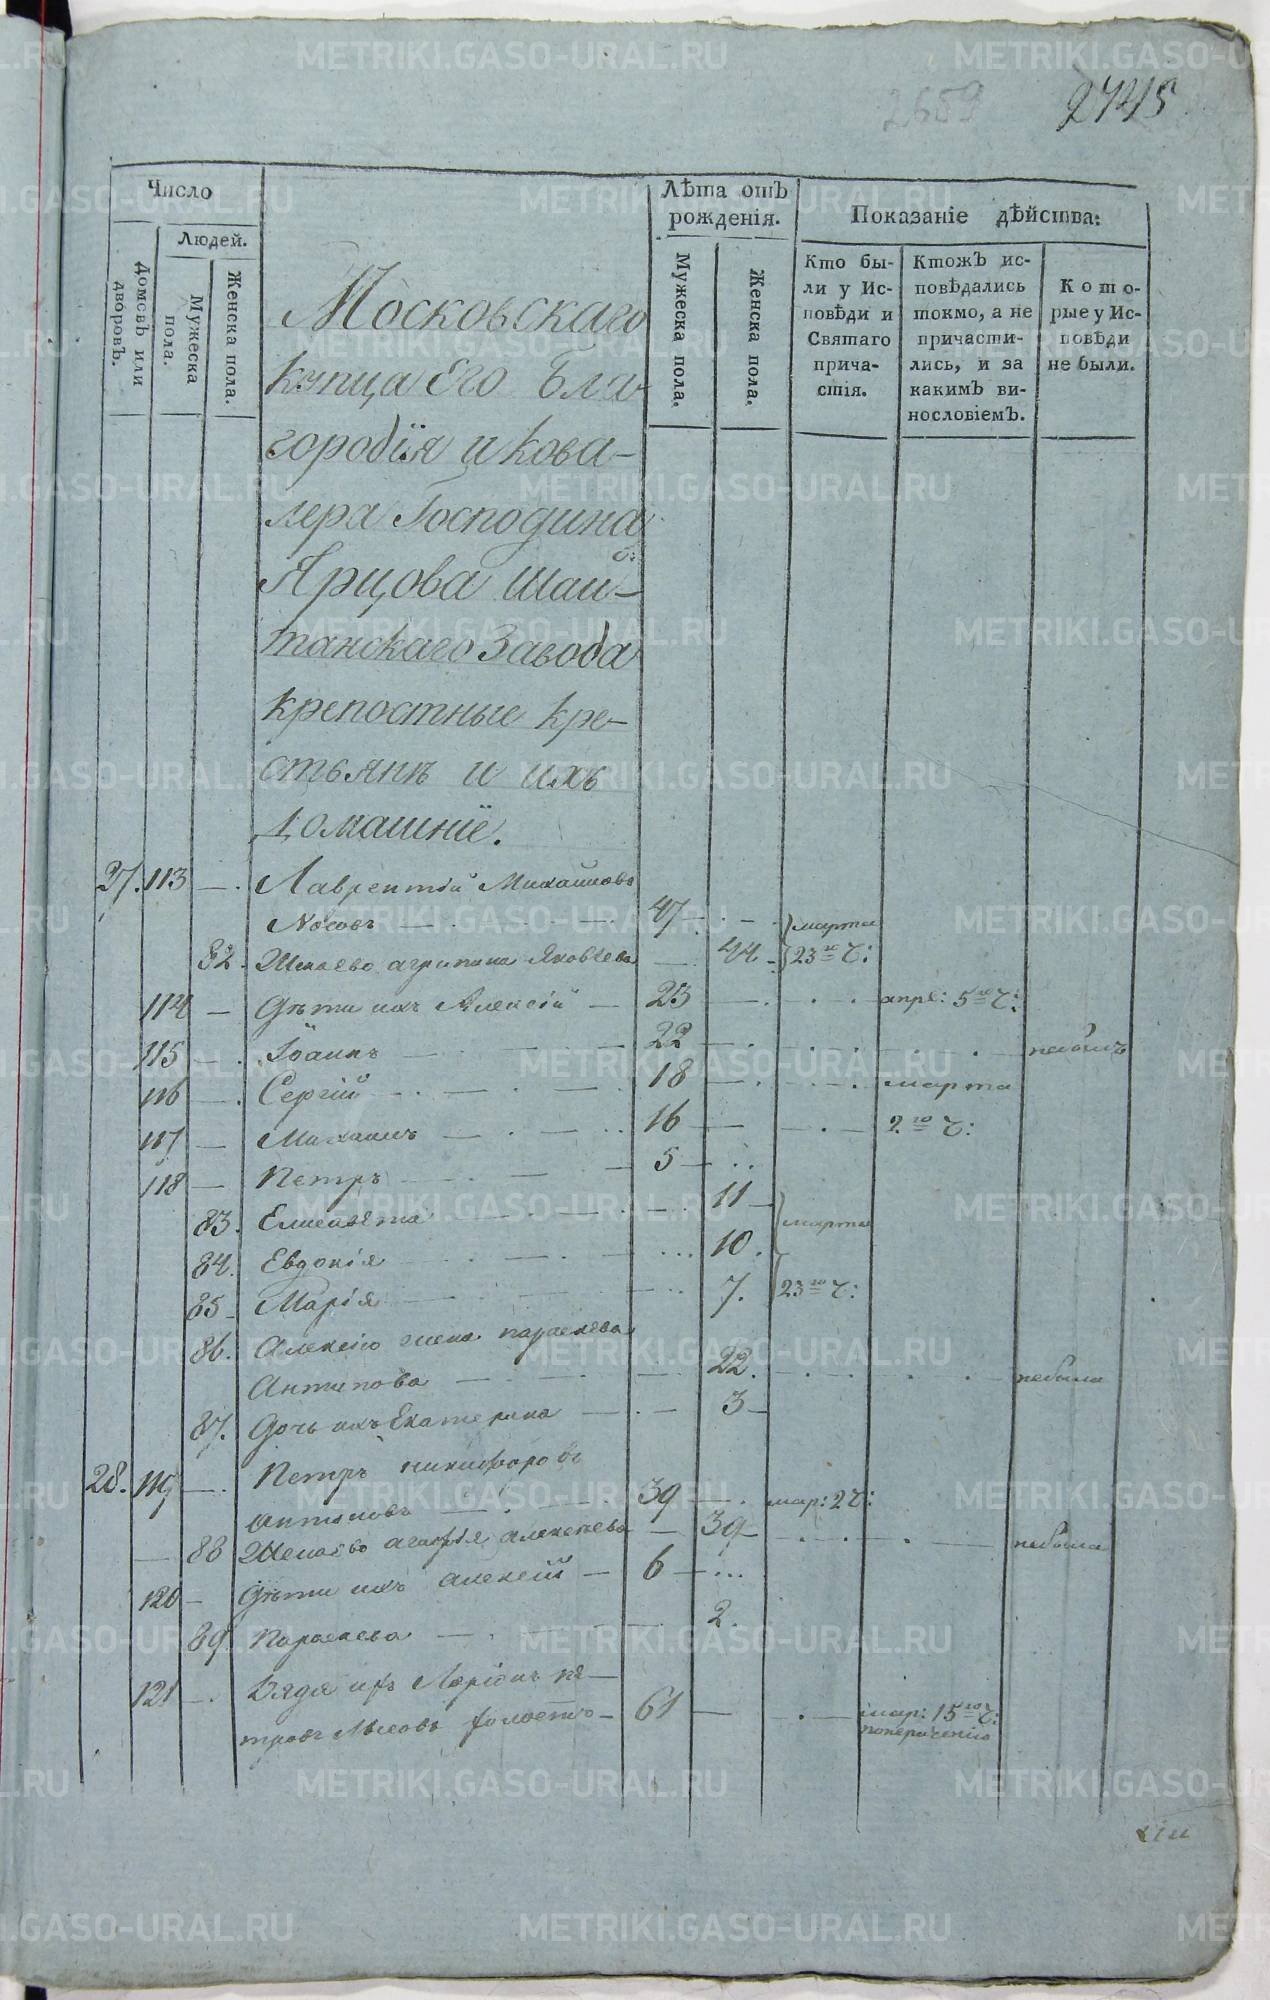 2659
2745
Число
Лѣта отъ рожденія.
Показаніе дѣйства:
Людей.
Домовъ или дворовъ.
Мужеска пола.
Женска пола.
Мужеска пола.
Женска пола.
Кто были у Исповѣди и Святаго причастія.
Ктожъ исповѣдались токмо, а не причастились, и за какимъ винословіемъ.
Которые у Исповѣди не были.
Московскаго
купца Его Бла-
городія и кова-
лера Господина
Ярцова Шай-
танскаго Завода
крепостные кре-
стьянѣ и ихъ
домашніе.
27. 113 — Лаврентій Михайловъ
Носовъ — 47 — марта
82. Жена ево агрипина Яковлева — 44 23го ч:
114 — Дѣти ихъ Алексій — 23 — апрѣ: 5го ч:
115 — Іоаннъ — 22 — небылъ
116 — Сергій — 18 — марта
117 — Михаилъ — 16 — 2го ч:
118 — Петръ — 5 —
83. Елисавета — 11 — марта
84. Евдокія — 10.
85 — Марія — 7. 23го ч:
86. Алексію жена параскева
Антипова — 22. небыла
87. Дочь ихъ Екатерина — 3 —
28. 119 — Петръ никифоровъ
антиповъ — 39 — мар: 2 ч:
88 Жена ево агафія алексѣева — 39 — небыла
120 — Дѣти ихъ алексій — 6 —
89. Параскева — 2.
121 — Дядя ихъ пе-
тровъ холостъ — 61 — мар: 15го ч:
METRIKI.GASO-URAL.RU